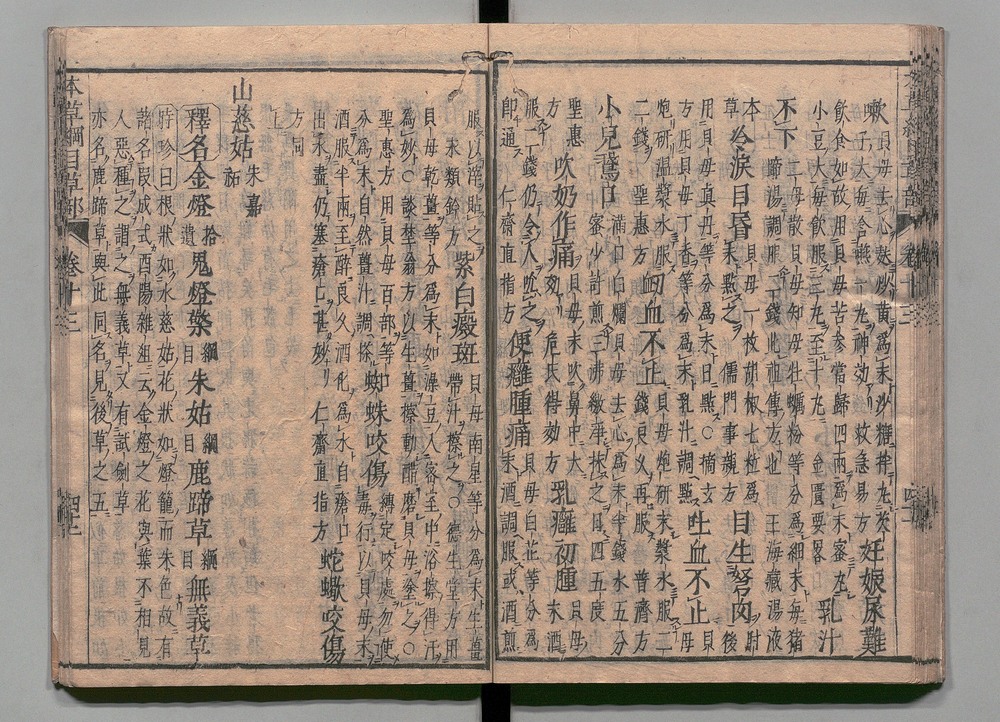 嗽 貝母去心麩炒黄爲末沙糖拌丸芡
子大毎含嚥一丸神効 救急易方 妊娠尿難
飲食如故用貝母苦参當歸四兩爲末蜜丸
小豆大毎飲服三丸至十丸 金匱要畧 乳汁
不下 二母散貝母知母牡蠣粉等分爲細末毎猪
蹄湯調服二錢此祖傳方也 王海藏湯液
本草 冷淚目昏 貝母一枚胡椒七粒爲
末點之 儒門事親方 目生弩肉 後
用貝母真丹等分爲末日點○摘玄
方用貝母丁香等分爲末乳汁調點 吐血不止 貝
母炮研温漿水服
二錢 聖惠方 衂血不止 貝母炮研末漿水服二
錢良久再服 普濟方
小兒鵞口 滿口白爛貝母去心爲末半錢水五分
蜜少許煎三沸緻淨抹之日四五度
聖惠
方 吹奶作痛 貝母末吹鼻中大
効 危氏得効方 乳癰初腫 貝母
末酒
服二錢仍令人吮之
即通 仁齋直指方 便癰腫痛 貝母白芷等分爲
末酒調服或酒煎
服以滓貼之
永類鈐方 紫白癜斑 貝母南星等分爲末生薑
帶汁擦之○德生堂方用
貝母乾薑等分爲末如澡豆入密室中浴擦得汗
爲妙○談埜翁方以生薑擦動醋磨貝母塗之○
聖惠方用貝母百部等
分爲末自然薑汁調搽 蜘蛛咬傷 縛定咬處勿使
毒行以貝母末
酒服半兩至醉良久酒化爲水自瘡口
出水盡仍塞瘡口甚妙 仁齋直指方 蛇蠍咬傷
方同
上
山慈姑 宋嘉
祐
釋名 金燈 拾
遺 鬼燈檠 綱
目 朱姑 綱
目 鹿蹄草 綱
目 無義草
時珍曰根狀如水慈姑花狀如燈籠而朱色故有
諸名段成式酉陽雜俎云金燈之花與葉不相見
人惡種之謂之無義草又有試劒草
亦名鹿蹄草與此同名見後草之五
本草綱目草部 卷十三